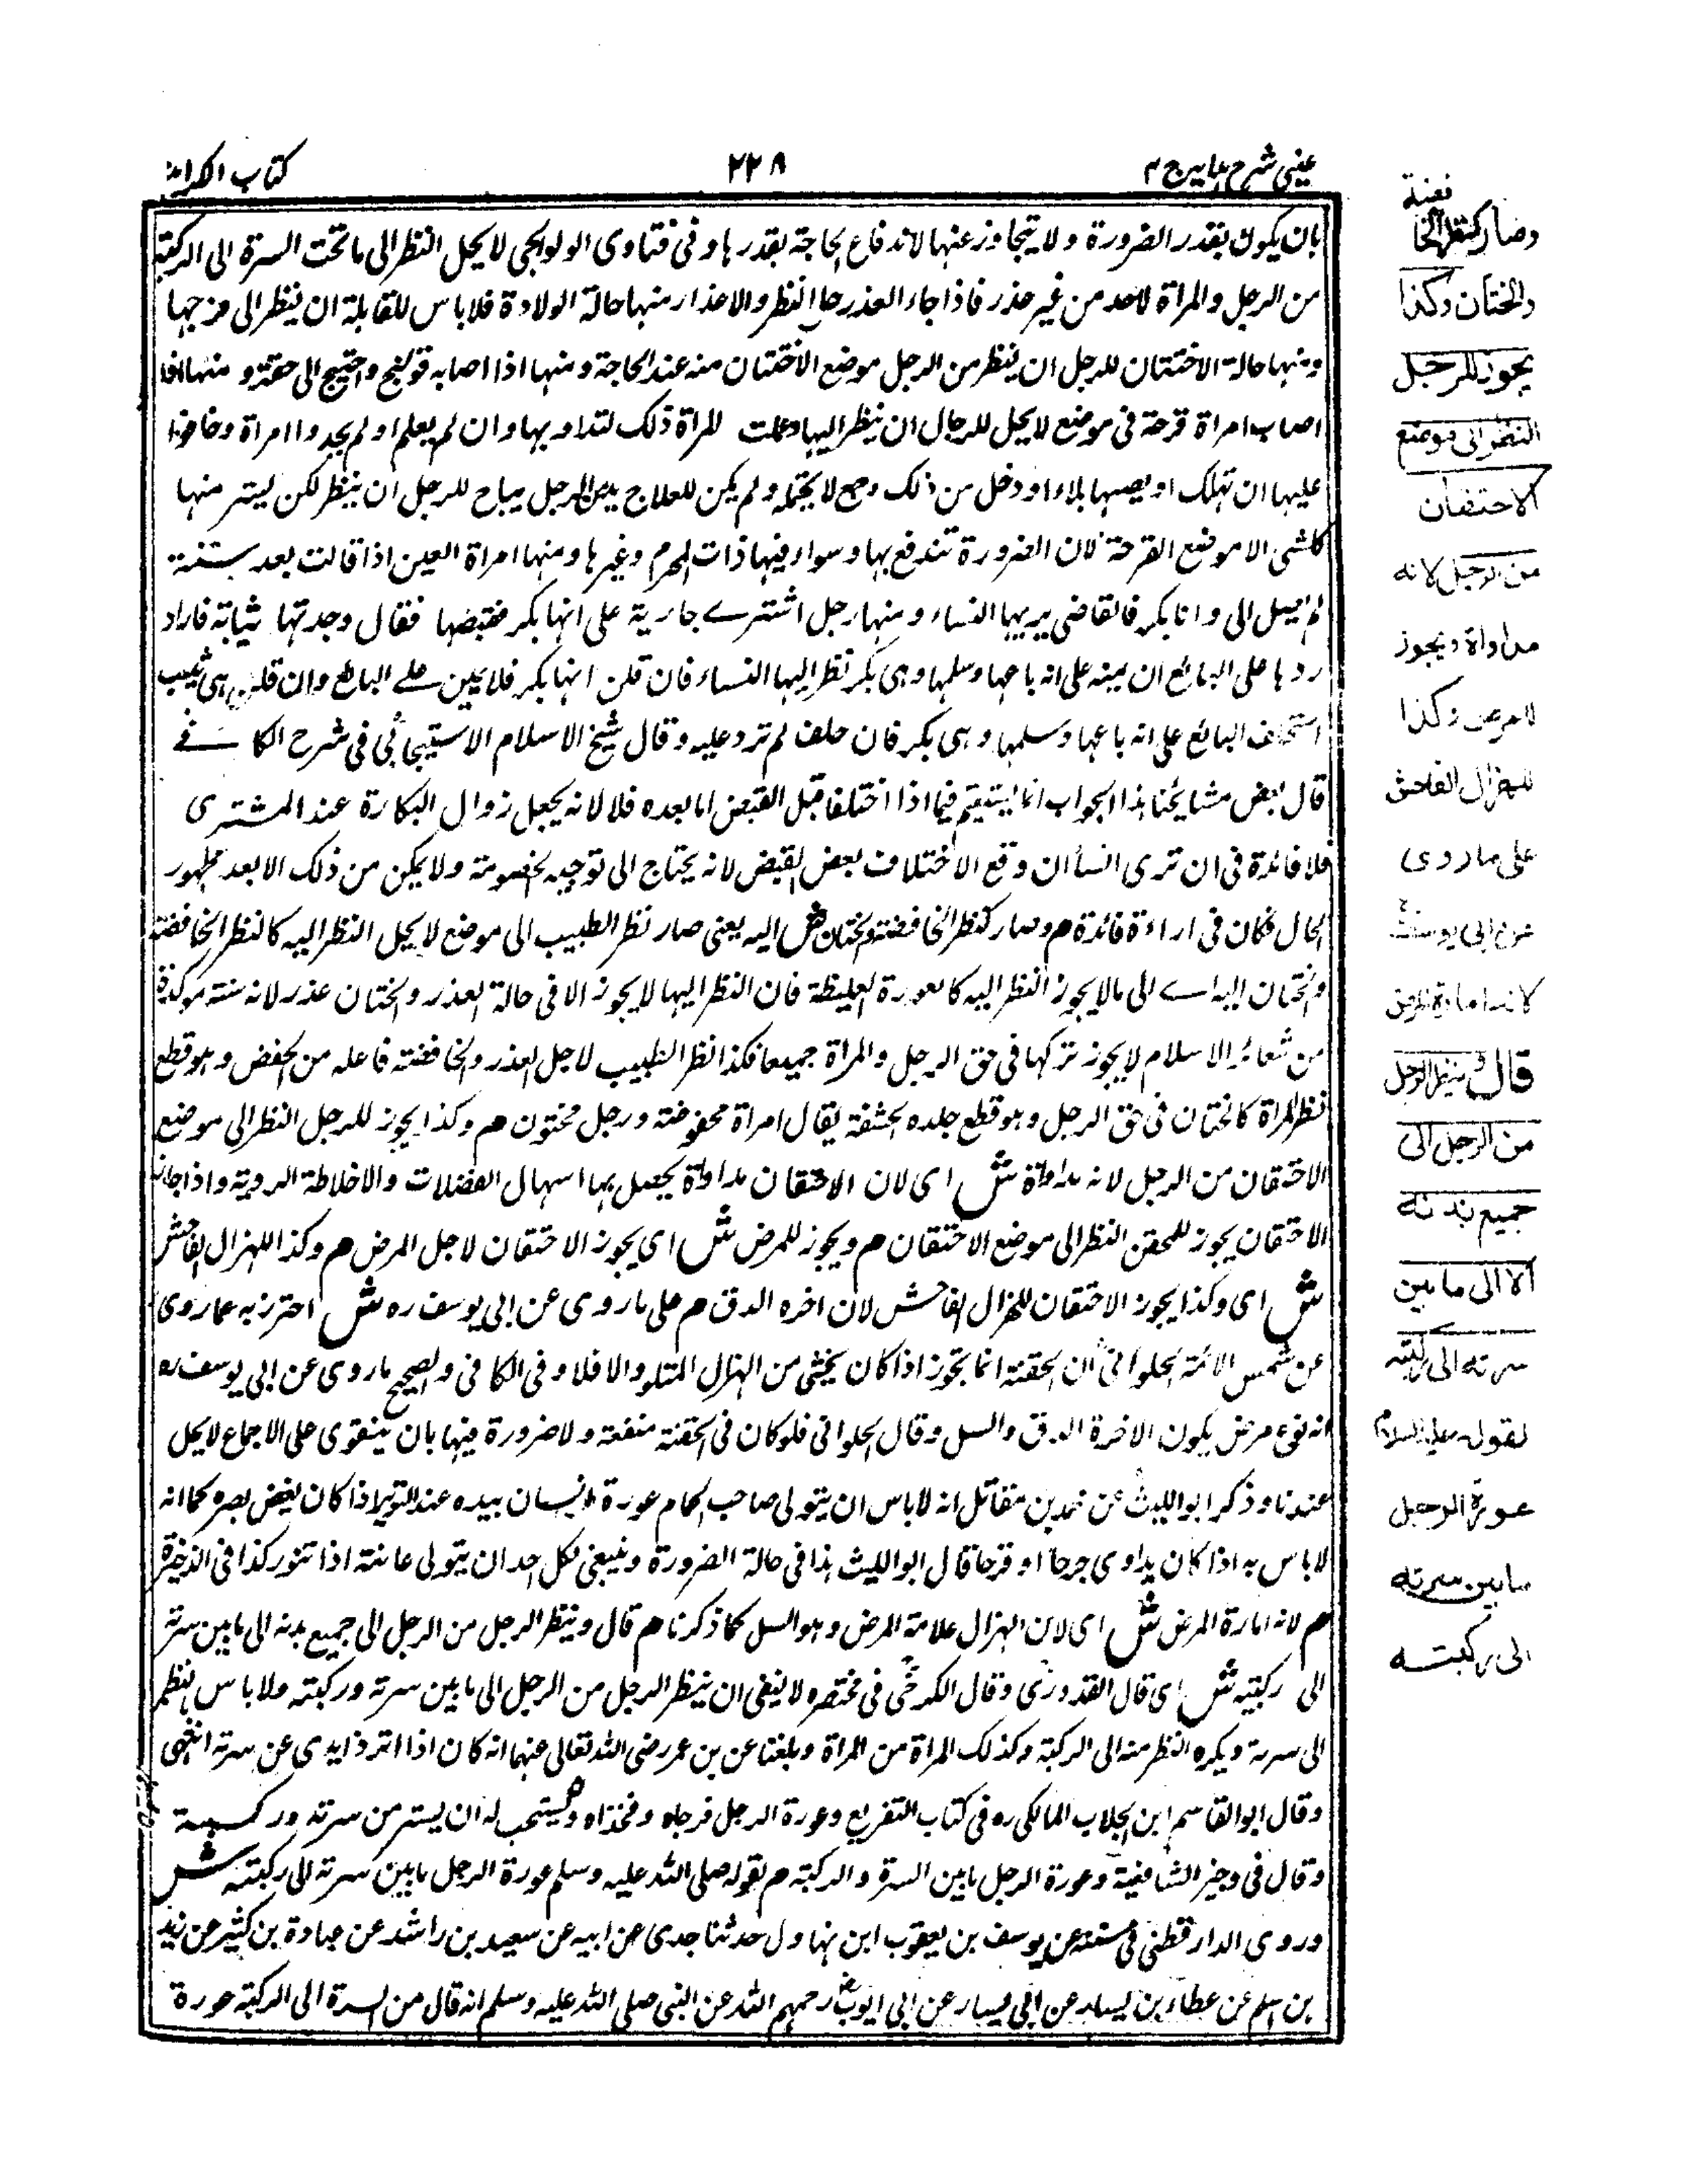 عینی شرح ہدایہ ج ۴
۲۲۸
کتاب الکراہیۃ
بان یکون بقدر الضرورة ولا یتجاوز عنہا لاندفاع الحاجة بقدرہا وفی فتاوی الولوالجی لا یحل النظر الی ما تحت السرة الی الرکبة
من الرجل والمراة لاحد من غیر عذر فاذا جاء العذر حل النظر والاعذار منہا حالة الولادة فلا باس للقابلة ان ینظر الی فرجہا
ومنہا حالة الاختتان للرجل ان ینظر من الرجل موضع الاختتان منه عند الحاجة ومنہا اذا اصابه قولنج واحتیج الی حقنة ومنہا اذا
اصاب امراة قرحة فی موضع لا یحل للرجال ان ینظر الیہا وعلمت للمراة ذلک لتداویہا وان لم یعلم او لم یجدوا امراة وخافوا
علیہا ان تہلک او یصیبہا بلاء او دخل من ذلک وجع لا یحتمله ولم یکن للعلاج بد من الرجل یباح للرجل ان ینظر لکن یستر منہا
کل شی الا موضع القرحة لان الضرورة تندفع بہا وسواء فیہا ذات المحرم وغیرہا ومنہا امراة العنین اذا قالت بعد سنة
لم یصل الی وانا بکر فالقاضی یریہا النساء ومنہا رجل اشترے جاریة علی انہا بکر فقبضہا فقال وجدتہا ثیابة فاراد
ردہا علی البائع ان یمینه علی انه باعہا وسلمہا وہی بکر نظر الیہا النساء فان قلن انہا بکر فلا یمین علے البائع وان قلن ہی ثیب
استحلف البائع علی انه باعہا وسلمہا وہی بکر فان حلف لم ترد علیه وقال شیخ الاسلام الاسبیجابی فی شرح الکافے
قال بعض مشایخنا ہذا الجواب انما یستقیم فیما اذا اختلفا قبل القبض اما بعده فلا لانه یجعل زوال البکارة عند المشتری
فلا فائدة فی ان تری النساء ان وقع الاختلاف بعض القبض لانه یحتاج الی توجیه الخصومة ولا یمکن من ذلک الا بعد ظہور
الحال فکان فی اراءة فائدة م وصار کنظر الخافضة والختان ش الیه یعنی صار نظر الطبیب الی موضع لا یحل النظر الیه کالنظر الخافضة
والختان الیه اے الی ما لا یجوز النظر الیه کالعورة الغلیظة فان النظر الیہا لا یجوز الا فی حالة العذر والختان عذر لانه سنة موکدة
من شعائر الاسلام لا یجوز ترکہا فی حق الرجل والمراة جمیعا فکذا نظر الطبیب لاجل العذر والخافضة فاعله من الخفض وہو قطع
نظر المراة کالختان فی حق الرجل وہو قطع جلده الحشفة یقال امراة مخفوضة ورجل مختون م وکذا یجوز للرجل النظر الی موضع
الاحتقان من الرجل لانه مداواة ش ای لان الاحتقان مداواة یحصل بہا اسہال الفضلات والاخلاطة الردیة واذا جاز
الاحتقان یجوز للمحقن النظر الی موضع الاحتقان م ویجوز للمرض ش ای یجوز الاحتقان لاجل المرض م وکذا للہزال الفاحش
ش ای وکذا یجوز الاحتقان للہزال الفاحش لان اخره الدق م علی ما روی عن ابی یوسف ره ش احترز به عما روی
عن شمس الائمة الحلوانی ان الحقنة انما تجوز اذا کان یخشی من الہزال التلف والا فلا وفی الکافی والصحیح ما روی عن ابی یوسف ره
انه نوع مرض یکون الاخرة الدق والسل وقال الحلوانی فلو کان فی الحقنة منفعة ولا ضرورة فیہا بان یتقوی علی الاجماع لا یحل
عندنا وذکر ابو اللیث عن محمد بن مقاتل انه لا باس ان یتولی صاحب الحمام عورة انسان بیده عند التنویر اذا کان یغض بصره کما انه
لا باس به اذا کان یداوی جرحا او قرحا قال ابو اللیث ہذا فی حالة الضرورة وینبغی لکل احد ان یتولی عانته اذا تنور کذا فی الذخیرة
م لانه امارة المرض ش ای لان الہزال علامة المرض وہو السل کما ذکرنا م قال وینظر الرجل من الرجل الی جمیع بدنه الی ما بین سرته
الی رکبتیه ش ای قال القدوری وقال الکرخی فی مختصره لا ینبغی ان ینظر الرجل من الرجل الی ما بین سرته ورکبته ولا باس بالنظر
الی سرته ویکره النظر منه الی الرکبة وکذلک المراة من المراة وبلغنا عن بن عمر رضی الله تعالی عنہما انه کان اذا اتزر ابدی عن سرته انتہی
وقال ابو القاسم ابن الجلاب المالکی ره فی کتاب التفریع وعورة الرجل فرجاه وفخذاه ویستحب له ان یستر من سرته ورکبته
وقال فی وجیز الشافعیة وعورة الرجل ما بین السرة والرکبة م لقوله صلی الله علیه وسلم عورة الرجل ما بین سرته الی رکبته ش
وروی الدارقطنی فی سننه عن یوسف بن یعقوب ابن بہلول حدثنا جدی عن ابیه عن سعید بن راشد عن عبادة بن کثیر عن زید
بن اسلم عن عطاء بن یسار عن ابی یسار عن ابی ایوب رحمہم الله عن النبی صلی الله علیه وسلم انه قال من السرة الی الرکبة عورة
وصار کنظر الخا
فضة
والختان وکذا
یجوز للرجل
النظر الی موضع
الاحتقان
من الرجل لانه
مداواة ویجوز
للمرض وکذا
للہزال الفاحش
علی ما روی
عن ابی یوسف
لانه امارة المرض
قال وینظر الرجل
من الرجل الی
جمیع بدنه
الا الی ما بین
سرته الی رکبته
لقوله علیه السلام
عورة الرجل
ما بین سرته
الی رکبته